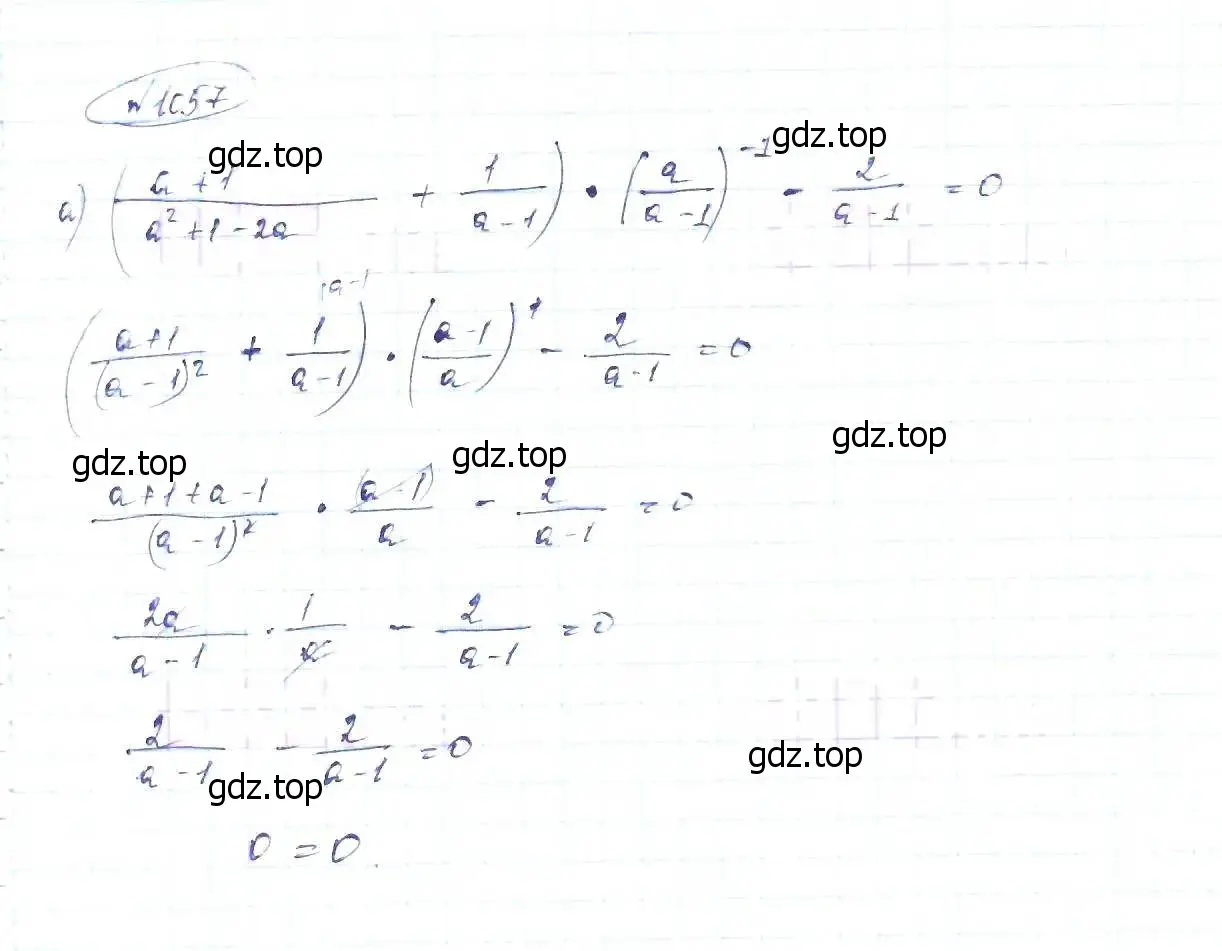 №1057
gdz.top gdz.top
а) ((a+1)/(a²+1-2a) + 1/(a-1)) · (a/(a-1))⁻¹ - 2/(a-1) = 0
((a+1)/((a-1)²) + 1/(a-1)) · ((a-1)/a)¹ - 2/(a-1) = 0
·a-1
gdz.top gdz.top gdz.top
(a+1+a-1)/(a-1)² · (a-1)/a - 2/(a-1) = 0
2a/(a-1) · 1/a - 2/(a-1) = 0
2/(a-1) - 2/(a-1) = 0
gdz.top gdz.top
0 = 0.